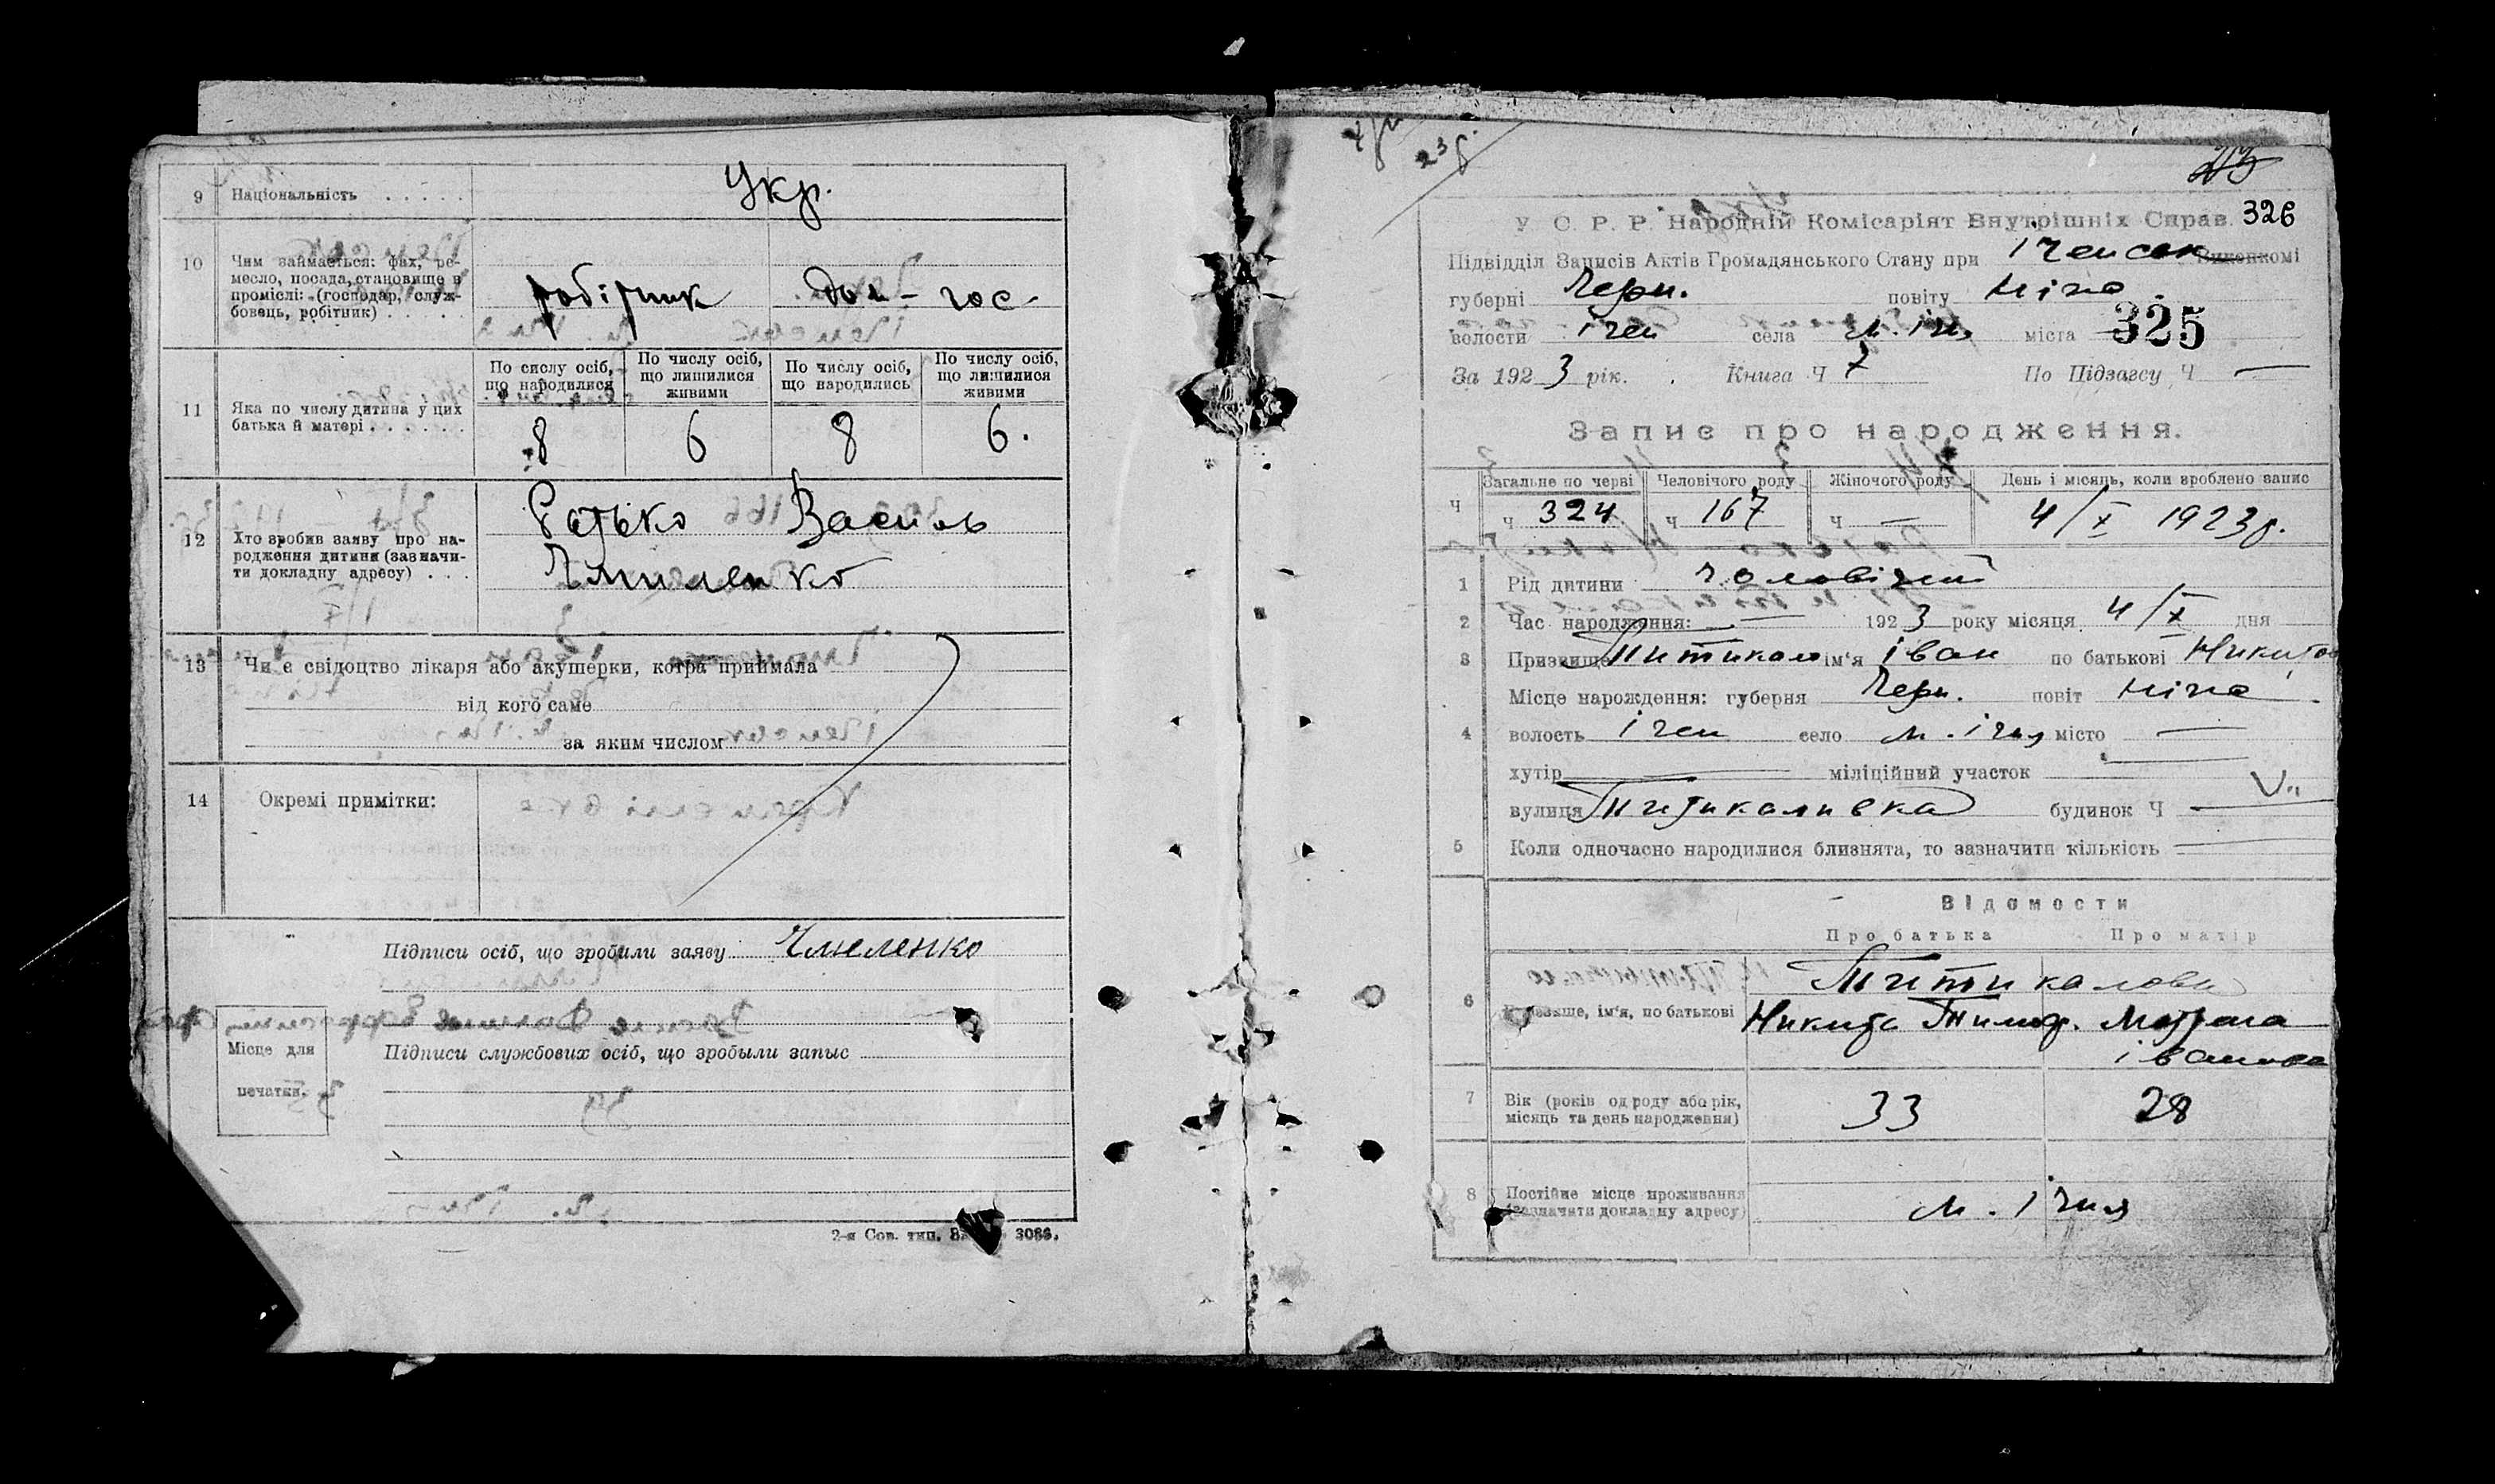 9 Національність . . . . . Укр.
10 Чим займається: фах, ре-
месло, посада, становище в
промислі: (господар, служ-
бовець, робітник) . . . . .
робітник дом-гос.
11 Яка по числу дитина у цих
батька й матері . . . . . .
По сислу осіб, що народилися
По числу осіб, що лишилися живими
По числу осіб, що народились
По числу осіб, що лишилися живими
8 6 8 6.
12 Хто зробив заяву про на-
родження дитини (зазначи-
ти докладну адресу) . . .
Батько Василь
Хмиленко
13 Чи є свідоцтво лікаря або акушерки, котра приймала
від кого саме
за яким числом
14 Окремі примітки:
Підписи осіб, що зробили заяву Хмеленко
Місце для
печатки.
Підписи службових осіб, що зробыли запыс
2-я Сов. тип. 3086.
23
326
У. С. Р. Р. Народній Комісаріят Внутрішніх Справ.
Підвідділ Записів Актів Громадянського Стану при Іченськ Виконкомі
губерні Черн. повіту Ніжс
волости Ічен села м. Ічн міста 325
За 192 3 рік. Книга Ч 7 По Підзагсу Ч —
Запис про народження.
Загальне по черві Человічого роду Жіночого роду День і місяць, коли зроблено запис
Ч ч 324 ч 167 ч — 4/X 1923 р.
1 Рід дитини чоловічий
2 Час народження: — 192 3 року місяця 4/X дня
3 Призвище Титикало ім'я Іван по батькові Никитов
4 Місце народження: губерня Черн. повіт Ніжс
волость Ічен село м. Ічня місто —
хутір — міліційний участок —
вулиця Титикаливка будинок Ч —
5 Коли одночасно народилися близнята, то зазначити кількість —
Відомости
Про батька Про матір
6 Призвище, ім'я, по батькові
Титикалови
Никита Тимоф. Мотрона
Іванова
7 Вік (років од роду або рік,
місяць та день народження) 33 28
8 Постійне місце проживання
(зазначити докладну адресу) м. Ічня